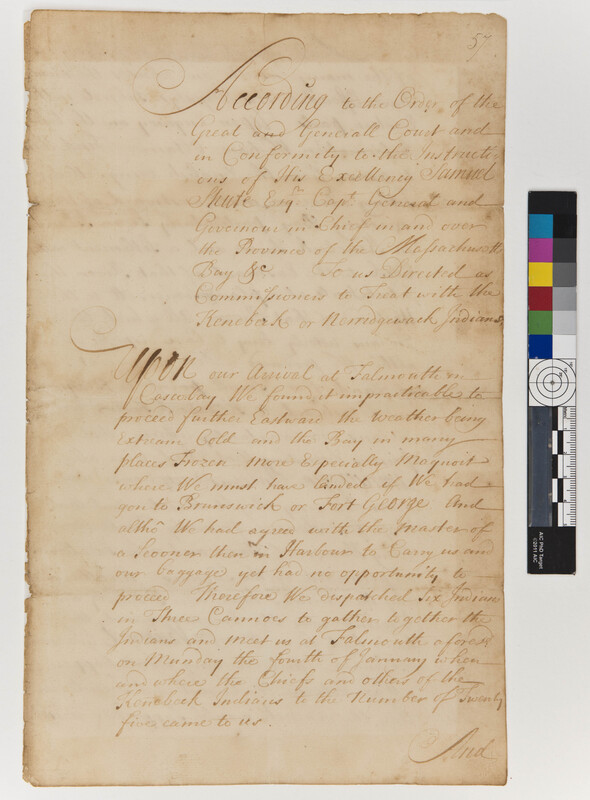 57
According to the Order of the
Great and Generall Court and
in Conformity to the Instructi
ons of His Excellency Samuel
Shute Esqr. Capt. General and
Governour in Chief in and over
the Province of the Massachusetts
Bay &c. To us Directed as
Commissioners to Treat with the
Kenebeck or Nerridgewack Indians,
Upon our Arrival at Falmouth in
Cascobay We found it impracticable to
proceed further Eastward the weather being
Extream Cold and the Bay in many
places Frozen more Especially Maquoit
where We must have landed if We had
gon to Brunswick or Fort George And
altho We had agreed with the Master of
a Scooner then in Harbour to Carry us and
our baggage yet had no opportunity to
proceed Therefore We despatched Six Indians
in Three Cannoes to gather together the
Indians and meet us at Falmouth aforesd.
on Munday the fourth of January when
and where the Chiefs and others of the
Kenebeck Indians to the Number of Twenty
five came to us.
And